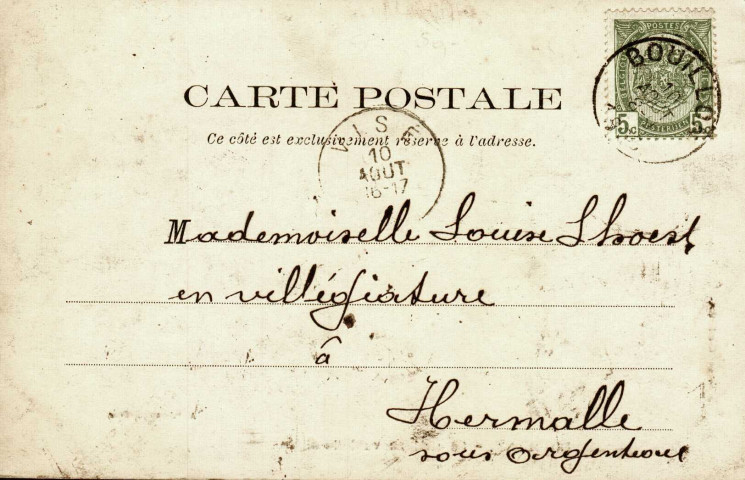 POSTES
BOUILLO
5c 5c
CARTE POSTALE
Ce côté est exclusivement réservé à l'adresse.
VISE
10
AOUT
16-17
Mademoiselle Louise Lhoest
en villégiature
à
Hermalle
sous Argenteau